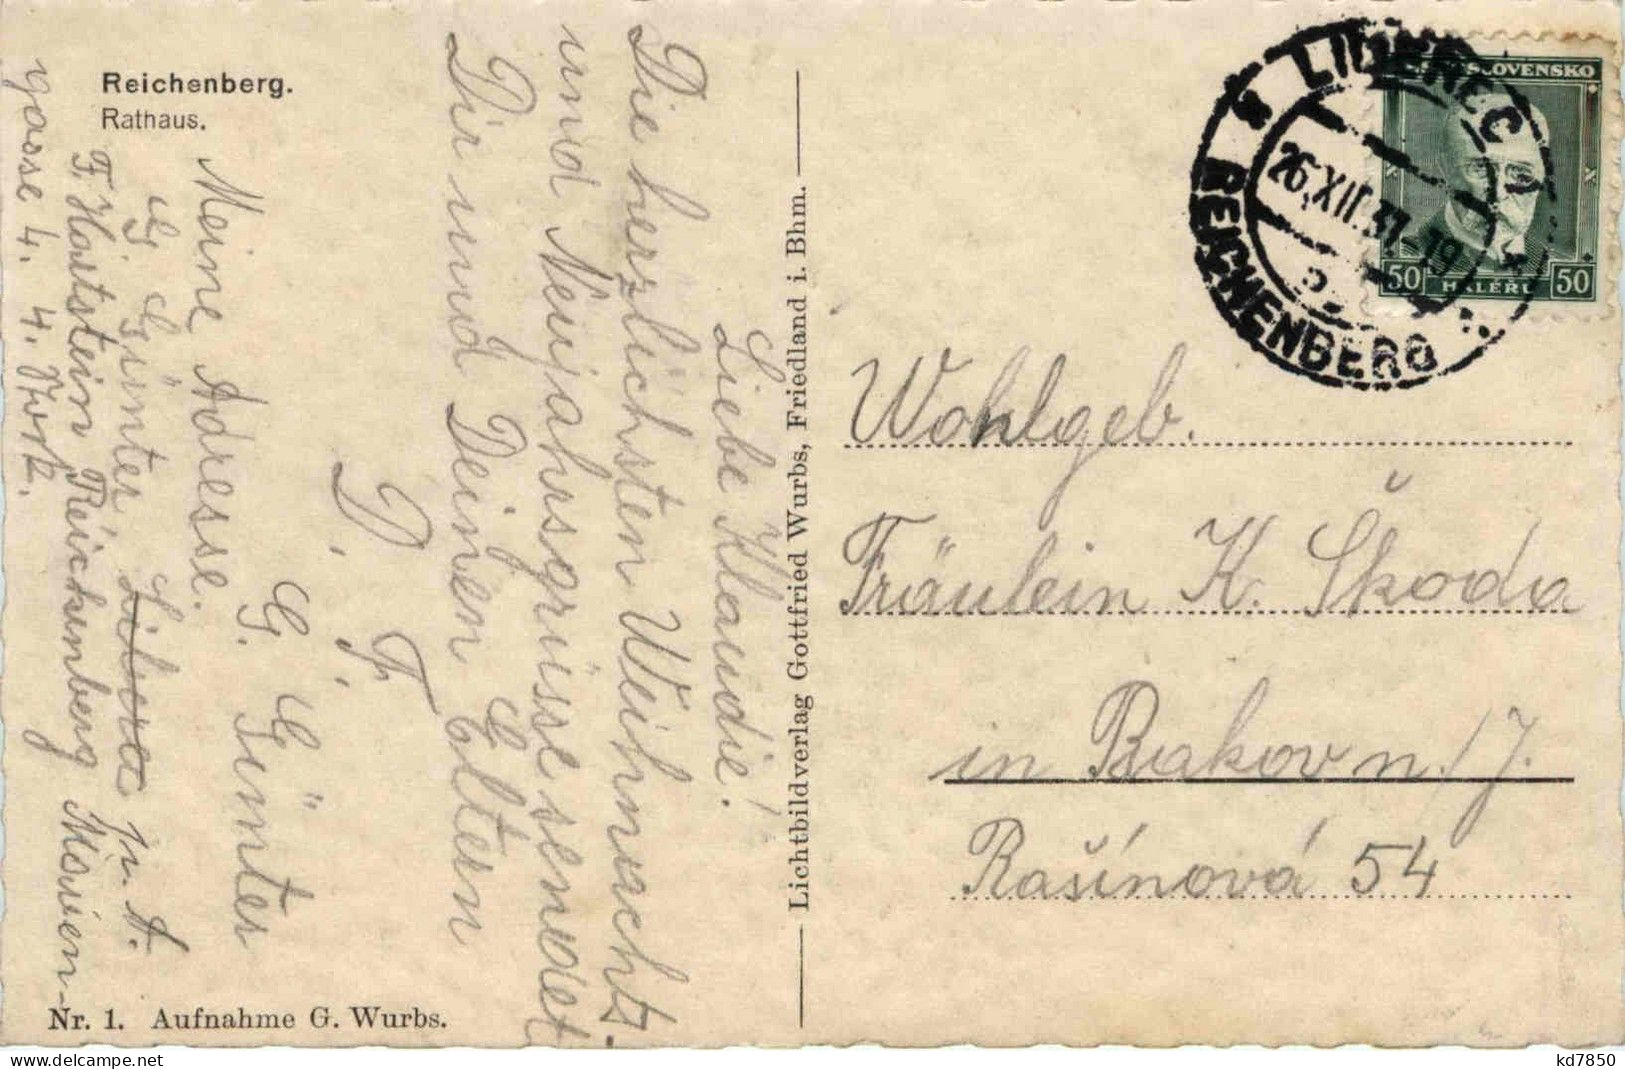 Reichenberg.
Rathaus.
Liebe Klaudie!
Die herzlichsten Weihnachts-
und Neujahrsgrüsse sendet
Dir und Deinen Eltern
D. F.
G. Günter
Meine Adresse.
G. Günter, Liberec
F. Hartstein Reichenberg Marien-
gasse 4. 4. Stok.
Lichtbildverlag Gottfried Wurbs, Friedland i. Bhm.
Nr. 1. Aufnahme G. Wurbs.
LIBEREC
REICHENBERG
26.XII.37-19
SLOVENSKO
50 HALÉŘŮ 50
Wohlgeb.
Fräulein K. Škoda
in Bakov n/J.
Rašínová 54
kd7850